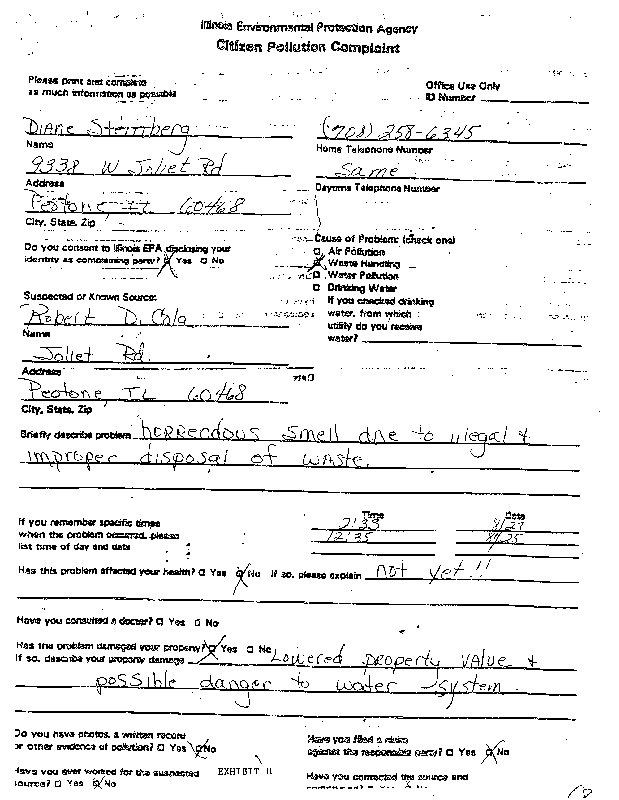 Illinois Environmental Protection Agency
Citizen Pollution Complaint
Please print and complete
as much information as possible
Office Use Only
ID Number
Diane Sternberg
(708) 258-6345
Name
Home Telephone Number
9338 W Joliet Rd
Same
Address
Daytime Telephone Number
Peotone, IL 60468
City, State, Zip
Do you consent to Illinois EPA disclosing your
identity as complaining party? Yes No
Cause of Problem: (check one)
Air Pollution
Waste Handling
Water Pollution
Drinking Water
If you checked drinking
water, from which
utility do you receive
water?
Suspected or Known Source:
Robert D. Cola
Name
Joliet Rd.
Address
Peotone, IL 60468
City, State, Zip
Briefly describe problem horrendous smell due to illegal &
improper disposal of waste.
If you remember specific times
when the problem occurred, please
list time of day and date
Time
Date
12:35
Has this problem affected your health? Yes No If so, please explain not yet!!
Have you consulted a doctor? Yes No
Has the problem damaged your property? Yes No Lowered property value &
If so, describe your property damage
possible danger to water system
Do you have photos, a written record
or other evidence of pollution? Yes No
Have you filed a claim
against the responsible party? Yes No
Have you ever worked for the suspected
source? Yes No
EXHIBIT
Have you contacted the source and